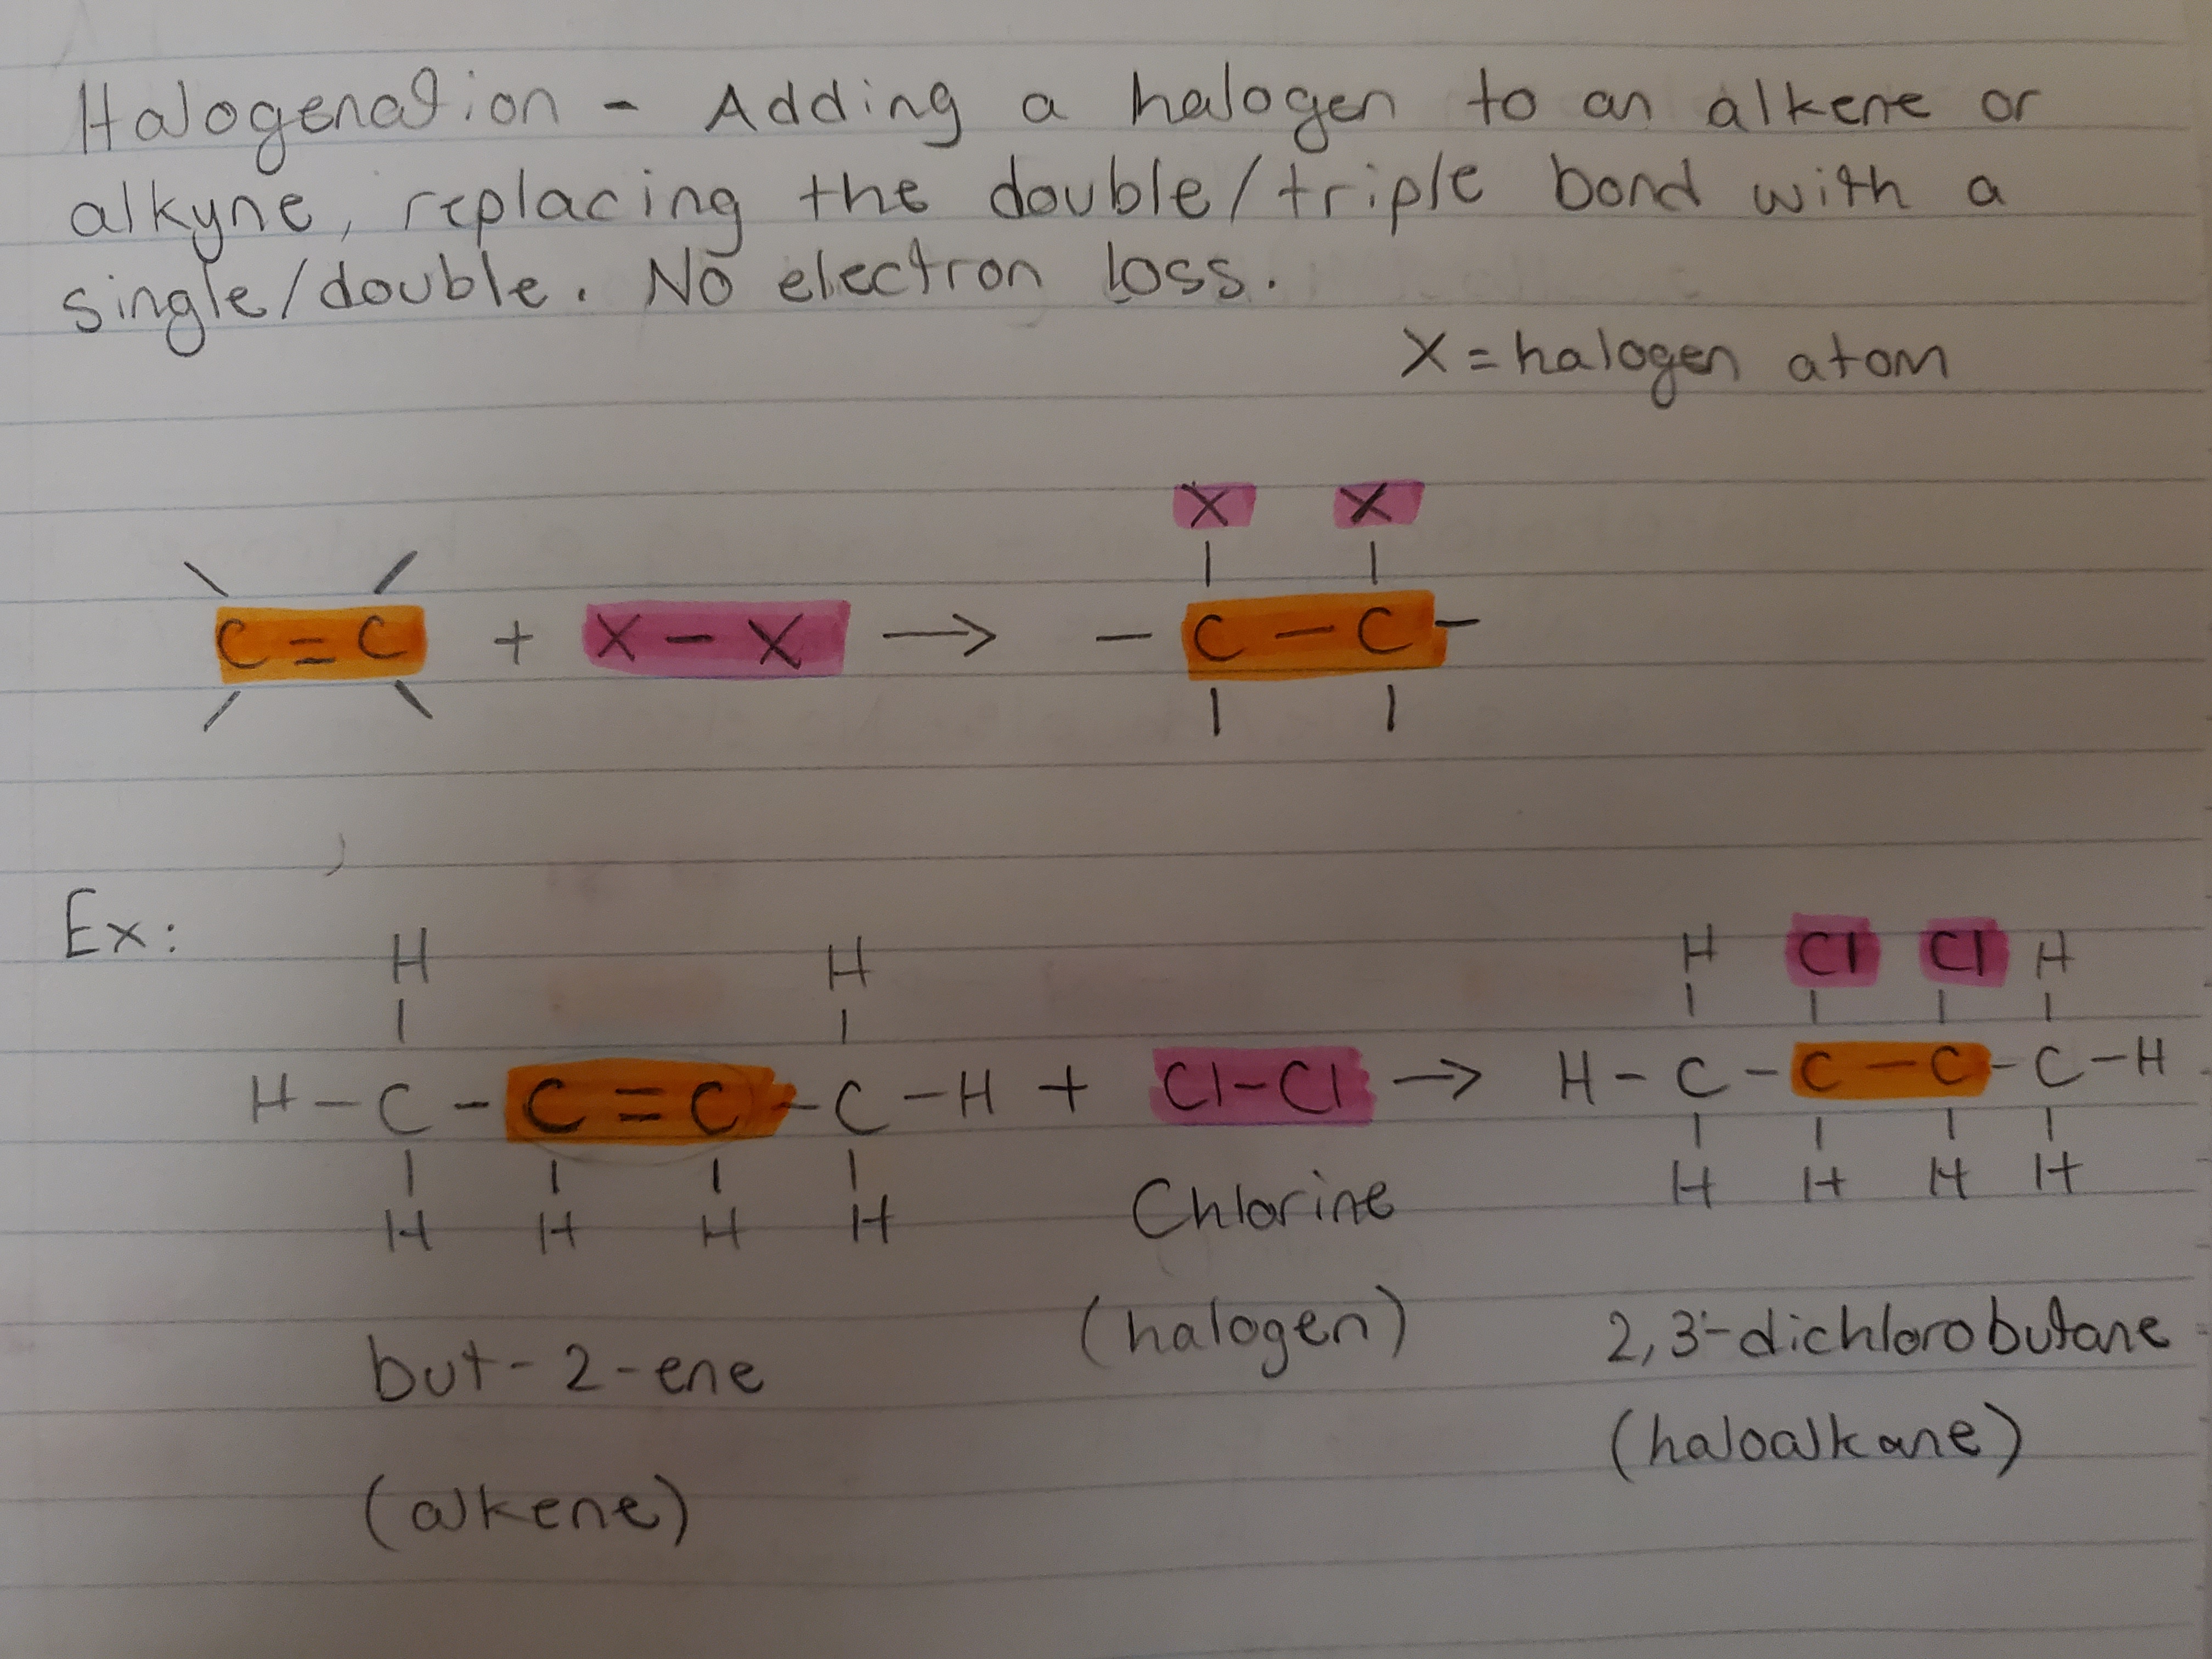 Halogenation - Adding a halogen to an alkene or
alkyne, replacing the double/triple bond with a
single/double. No electron loss.
X = halogen atom
X X
C = C + X - X → - C - C -
Ex:
H H H Cl Cl H
H - C - C = C - C - H + Cl-Cl → H - C - C - C - C - H
H H H H H H H H
Chlorine
but-2-ene (halogen) 2,3-dichlorobutane
(alkene) (haloalkane)